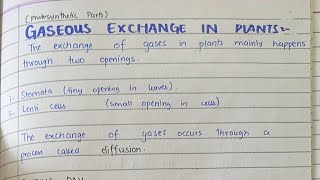 (Photosynthetic Parts)
GASEOUS EXCHANGE IN PLANTS:-
The exchange of gases in plants mainly happens
through two openings.
i. Stomata (tiny opening in leaves).
ii. Lenti cells (small opening in cells)
The exchange of gases occurs through a
process called diffusion.